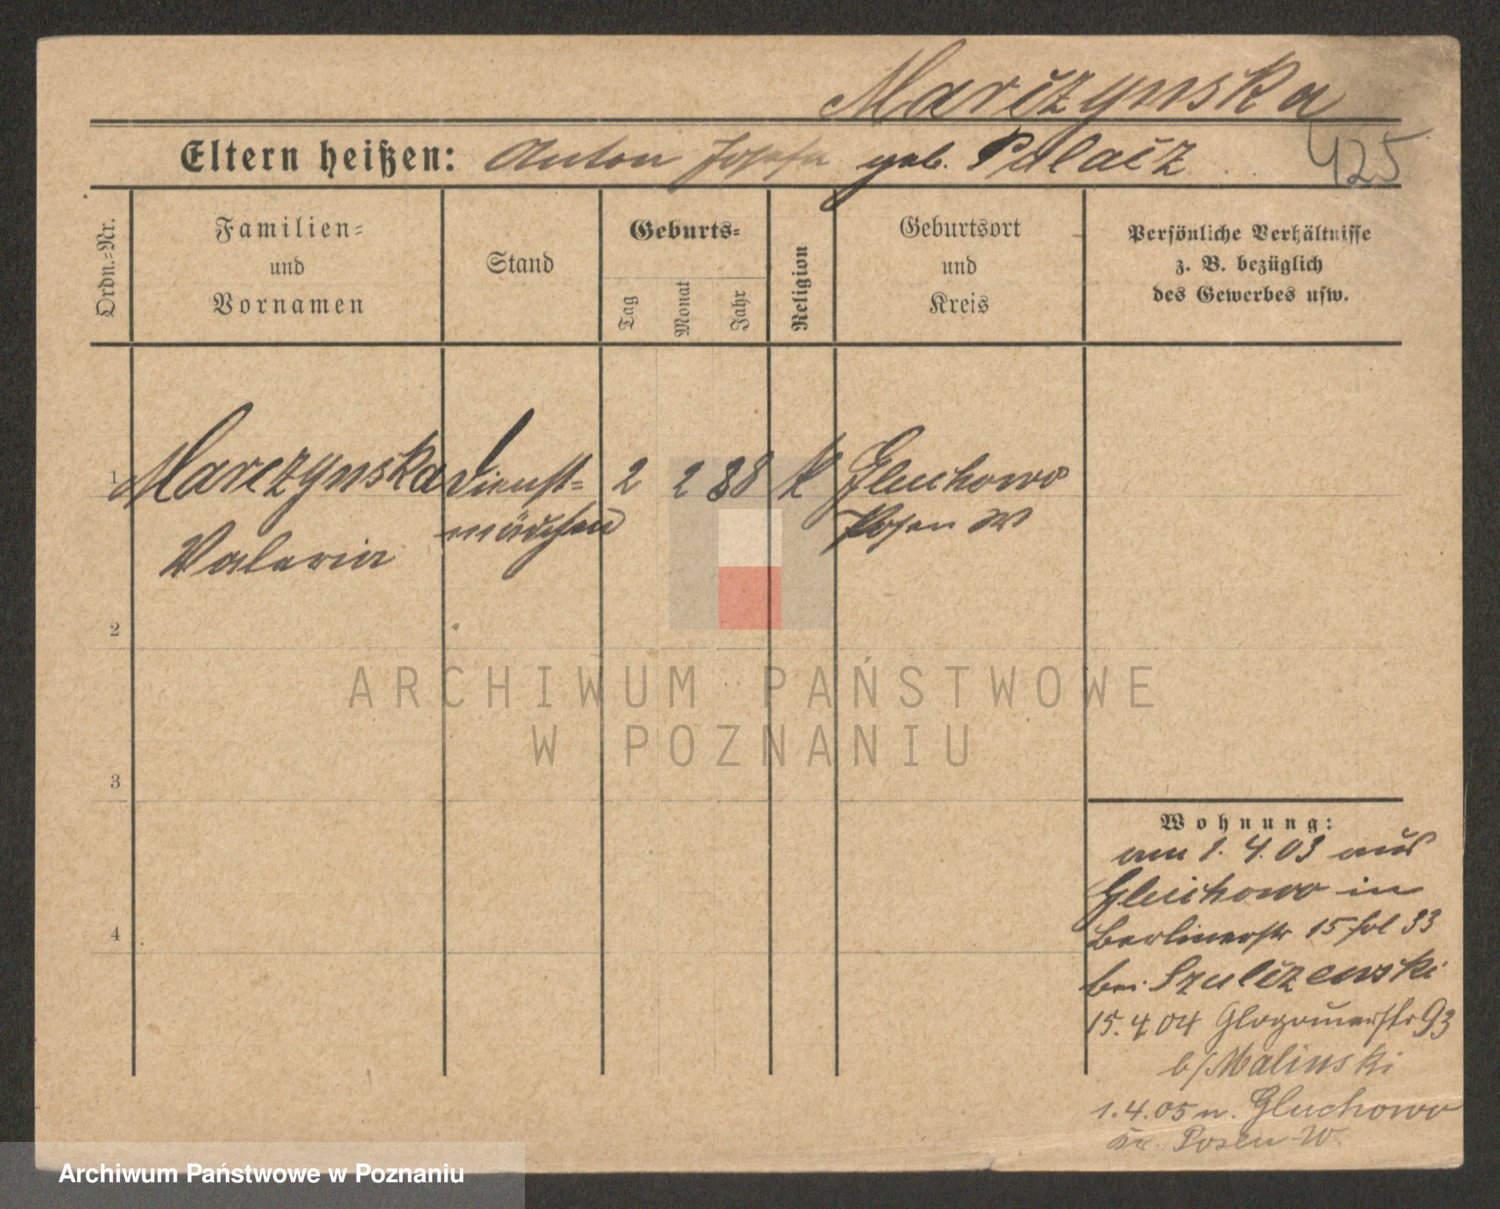 Marczynska
425
Eltern heißen: Anton Josefa geb. Palacz
Ordn.=Nr.
Familien=
und
Vornamen
Stand
Geburts=
Tag
Monat
Jahr
Religion
Geburtsort
und
Kreis
Persönliche Verhältnisse
z. B. bezüglich
des Gewerbes usw.
1 Marczynska Dienst= 2 2 88 k Gluchowo
Valeria mädchen Posen W
2
3
4
ARCHIWUM PAŃSTWOWE
W POZNANIU
Wohnung:
am 1.4.03 aus
Gluchowo in
Berlinerstr 15 fol 33
bei Szulczewski
15.4.04 Glogauerstr 93
b/Malinski
1.4.05 n. Gluchowo
Kr. Posen W.
Archiwum Państwowe w Poznaniu